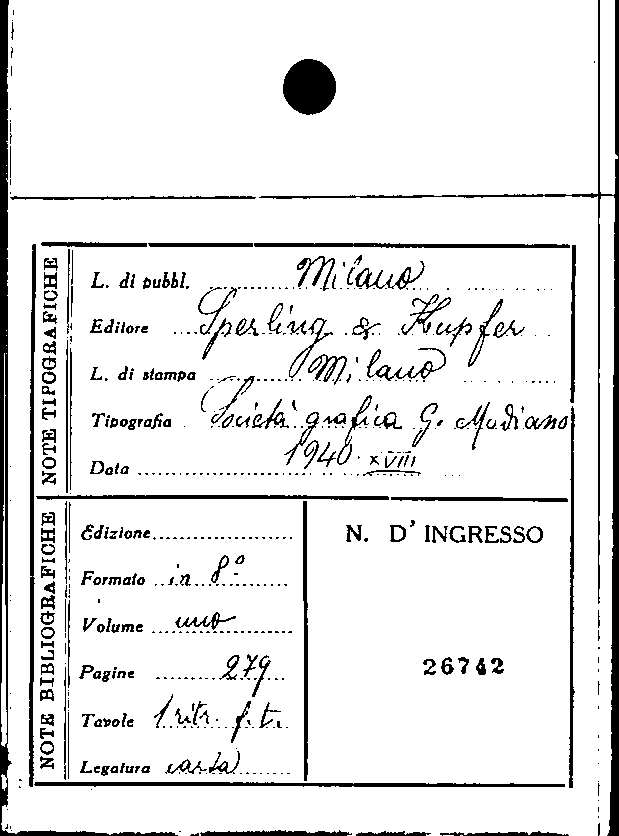 NOTE TIPOGRAFICHE
L. di pubbl. Milano
Editore Sperling & Kupfer
L. di stampa Milano
Tipografia Società grafica G. Modiano
Data 1940 XVIII
NOTE BIBLIOGRAFICHE
Edizione
Formato in 8º
Volume uno
Pagine 279
Tavole 1 ritr. f.t.
Legatura carta
N. D' INGRESSO
26742